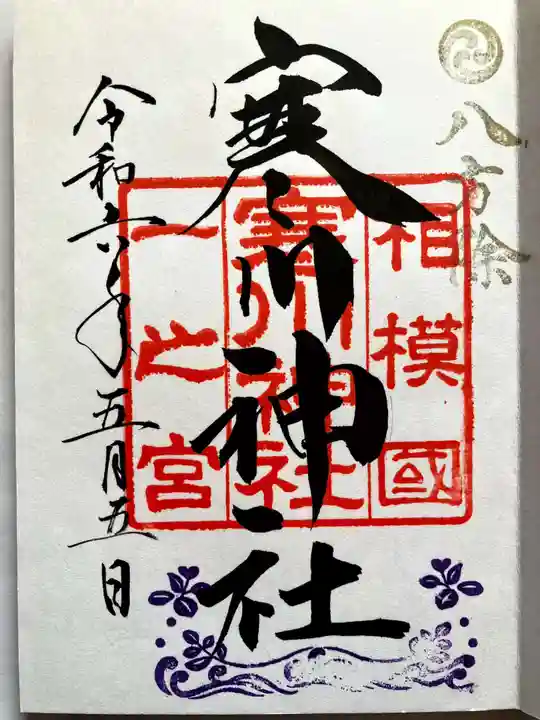 八方除
寒川神社
相模國
寒川神社
一之宮
令和六年五月五日